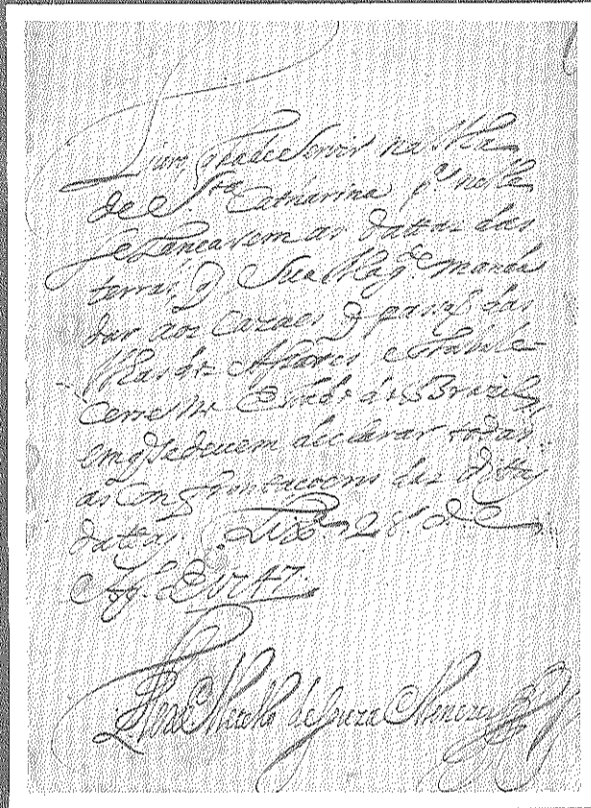 Livro, q̃ ha de servir na Ilha
de S.ta Catharina p.a nelle
se lançarem as dattas das
terras, q̃ Sua Mag.e manda
dar aos cazaes q̃ passaõ das
Ilhas dos Assores a estabele-
cerse no Estado do Brazil,
em q̃ se devem declarar todas
as confrontacoens das ditas
dattas. Lix.a 28 de
Ag.o de 1747.
de Souza Menezes